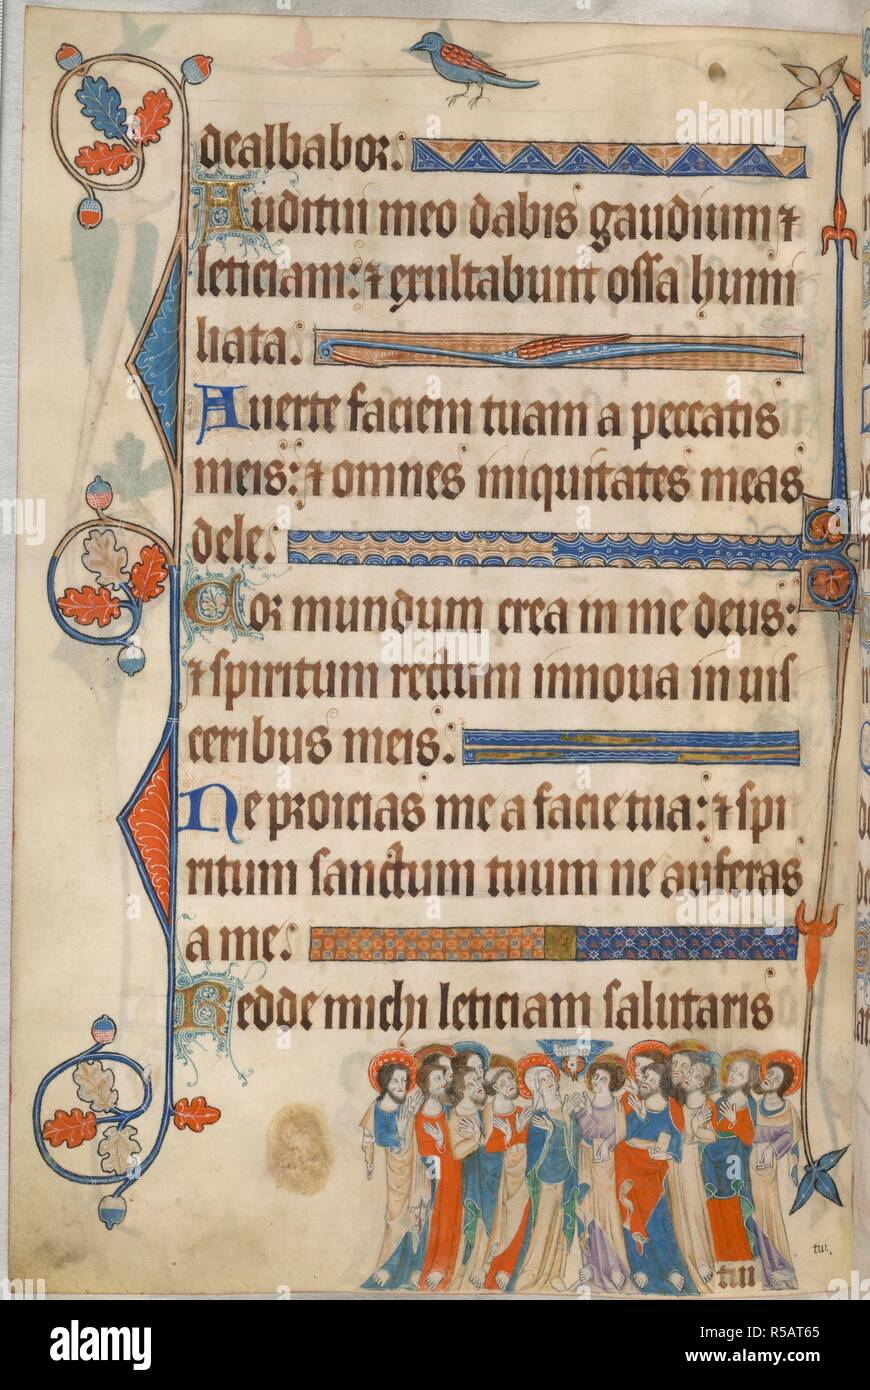 dealbabor.
Auditui meo dabis gaudium ⁊
leticiam: ⁊ exultabunt ossa humi
liata.
Auerte faciem tuam a peccatis
meis: ⁊ omnes iniquitates meas
dele.
Cor mundum crea in me deus:
⁊ spiritum rectum innoua in uis
ceribus meis.
Ne proicias me a facie tua: ⁊ spi
ritum sanctum tuum ne auferas
a me.
Redde michi leticiam salutaris
tui
tui.
alamy
Image ID: R5AT65
www.alamy.com